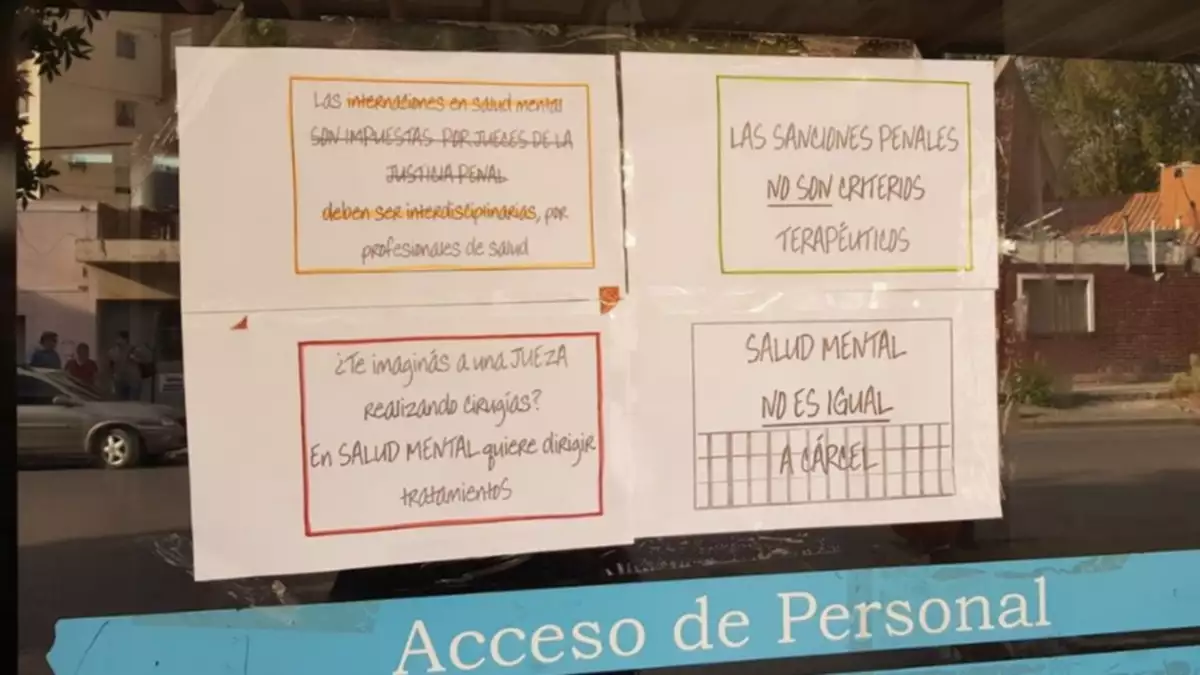 Las internaciones en salud mental
SON IMPUESTAS POR JUECES DE LA
JUSTICIA PENAL
deben ser interdisciplinarias, por
profesionales de salud
LAS SANCIONES PENALES
NO SON CRITERIOS
TERAPÉUTICOS
¿Te imaginás a una JUEZA
realizando cirugías?
En SALUD MENTAL quiere dirigir
tratamientos
SALUD MENTAL
NO ES IGUAL
A CÁRCEL
Acceso de Personal